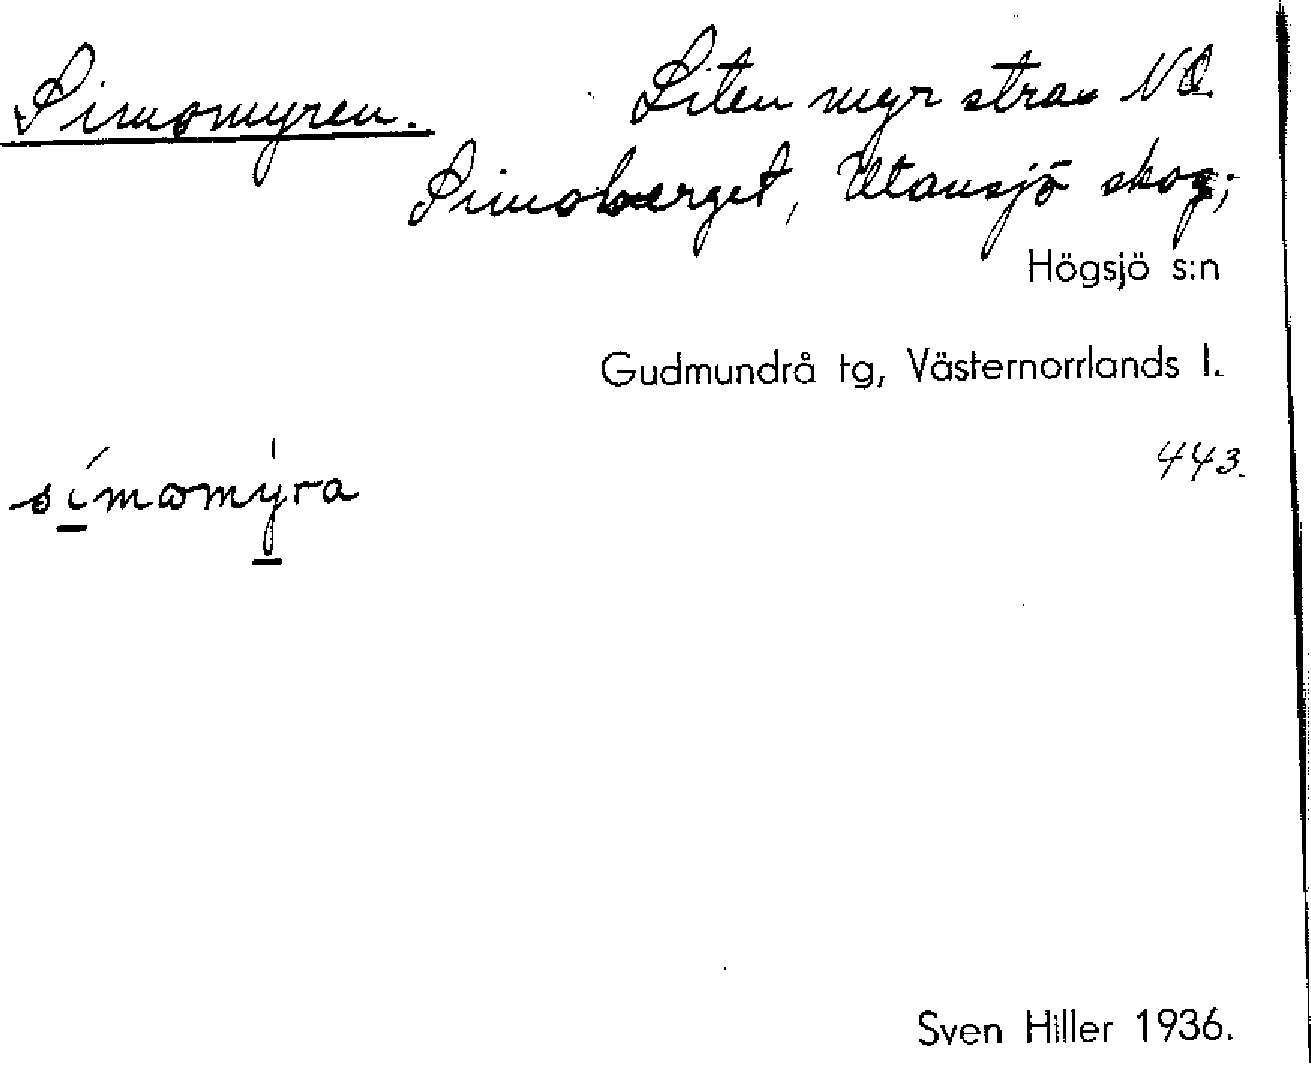 Simomyren. Liten myr strax NO
Simoberget, Utansjö skog;
Högsjö s:n
Gudmundrå tg, Västernorrlands l.
443.
simomyra
Sven Hiller 1936.